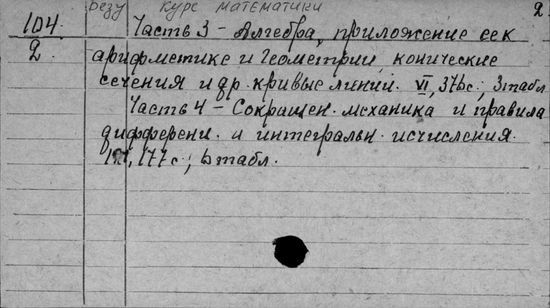 резу курс математики 2
104. Часть 3 – Алгебра, приложение еек
2 арифметике и геометрии, конические
сечения и др. кривые линии. VI, 376с.; 3табл
Часть 4 – Сокращен. механика и правила
дифферени. и интегральн. исчисления.
177с.; 6табл.